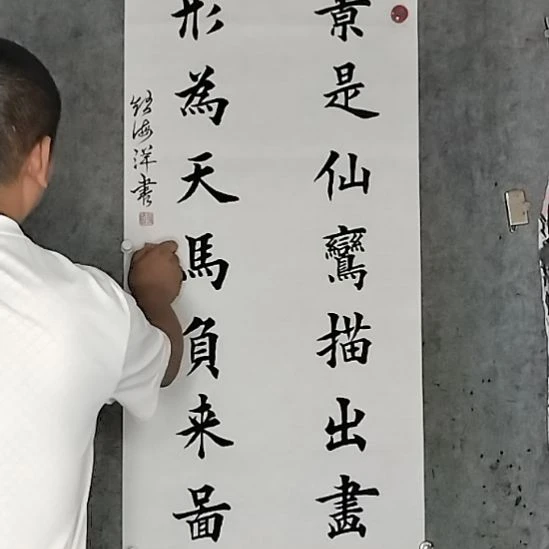 景是仙鸞描出畫
形為天馬負来啚
海洋書